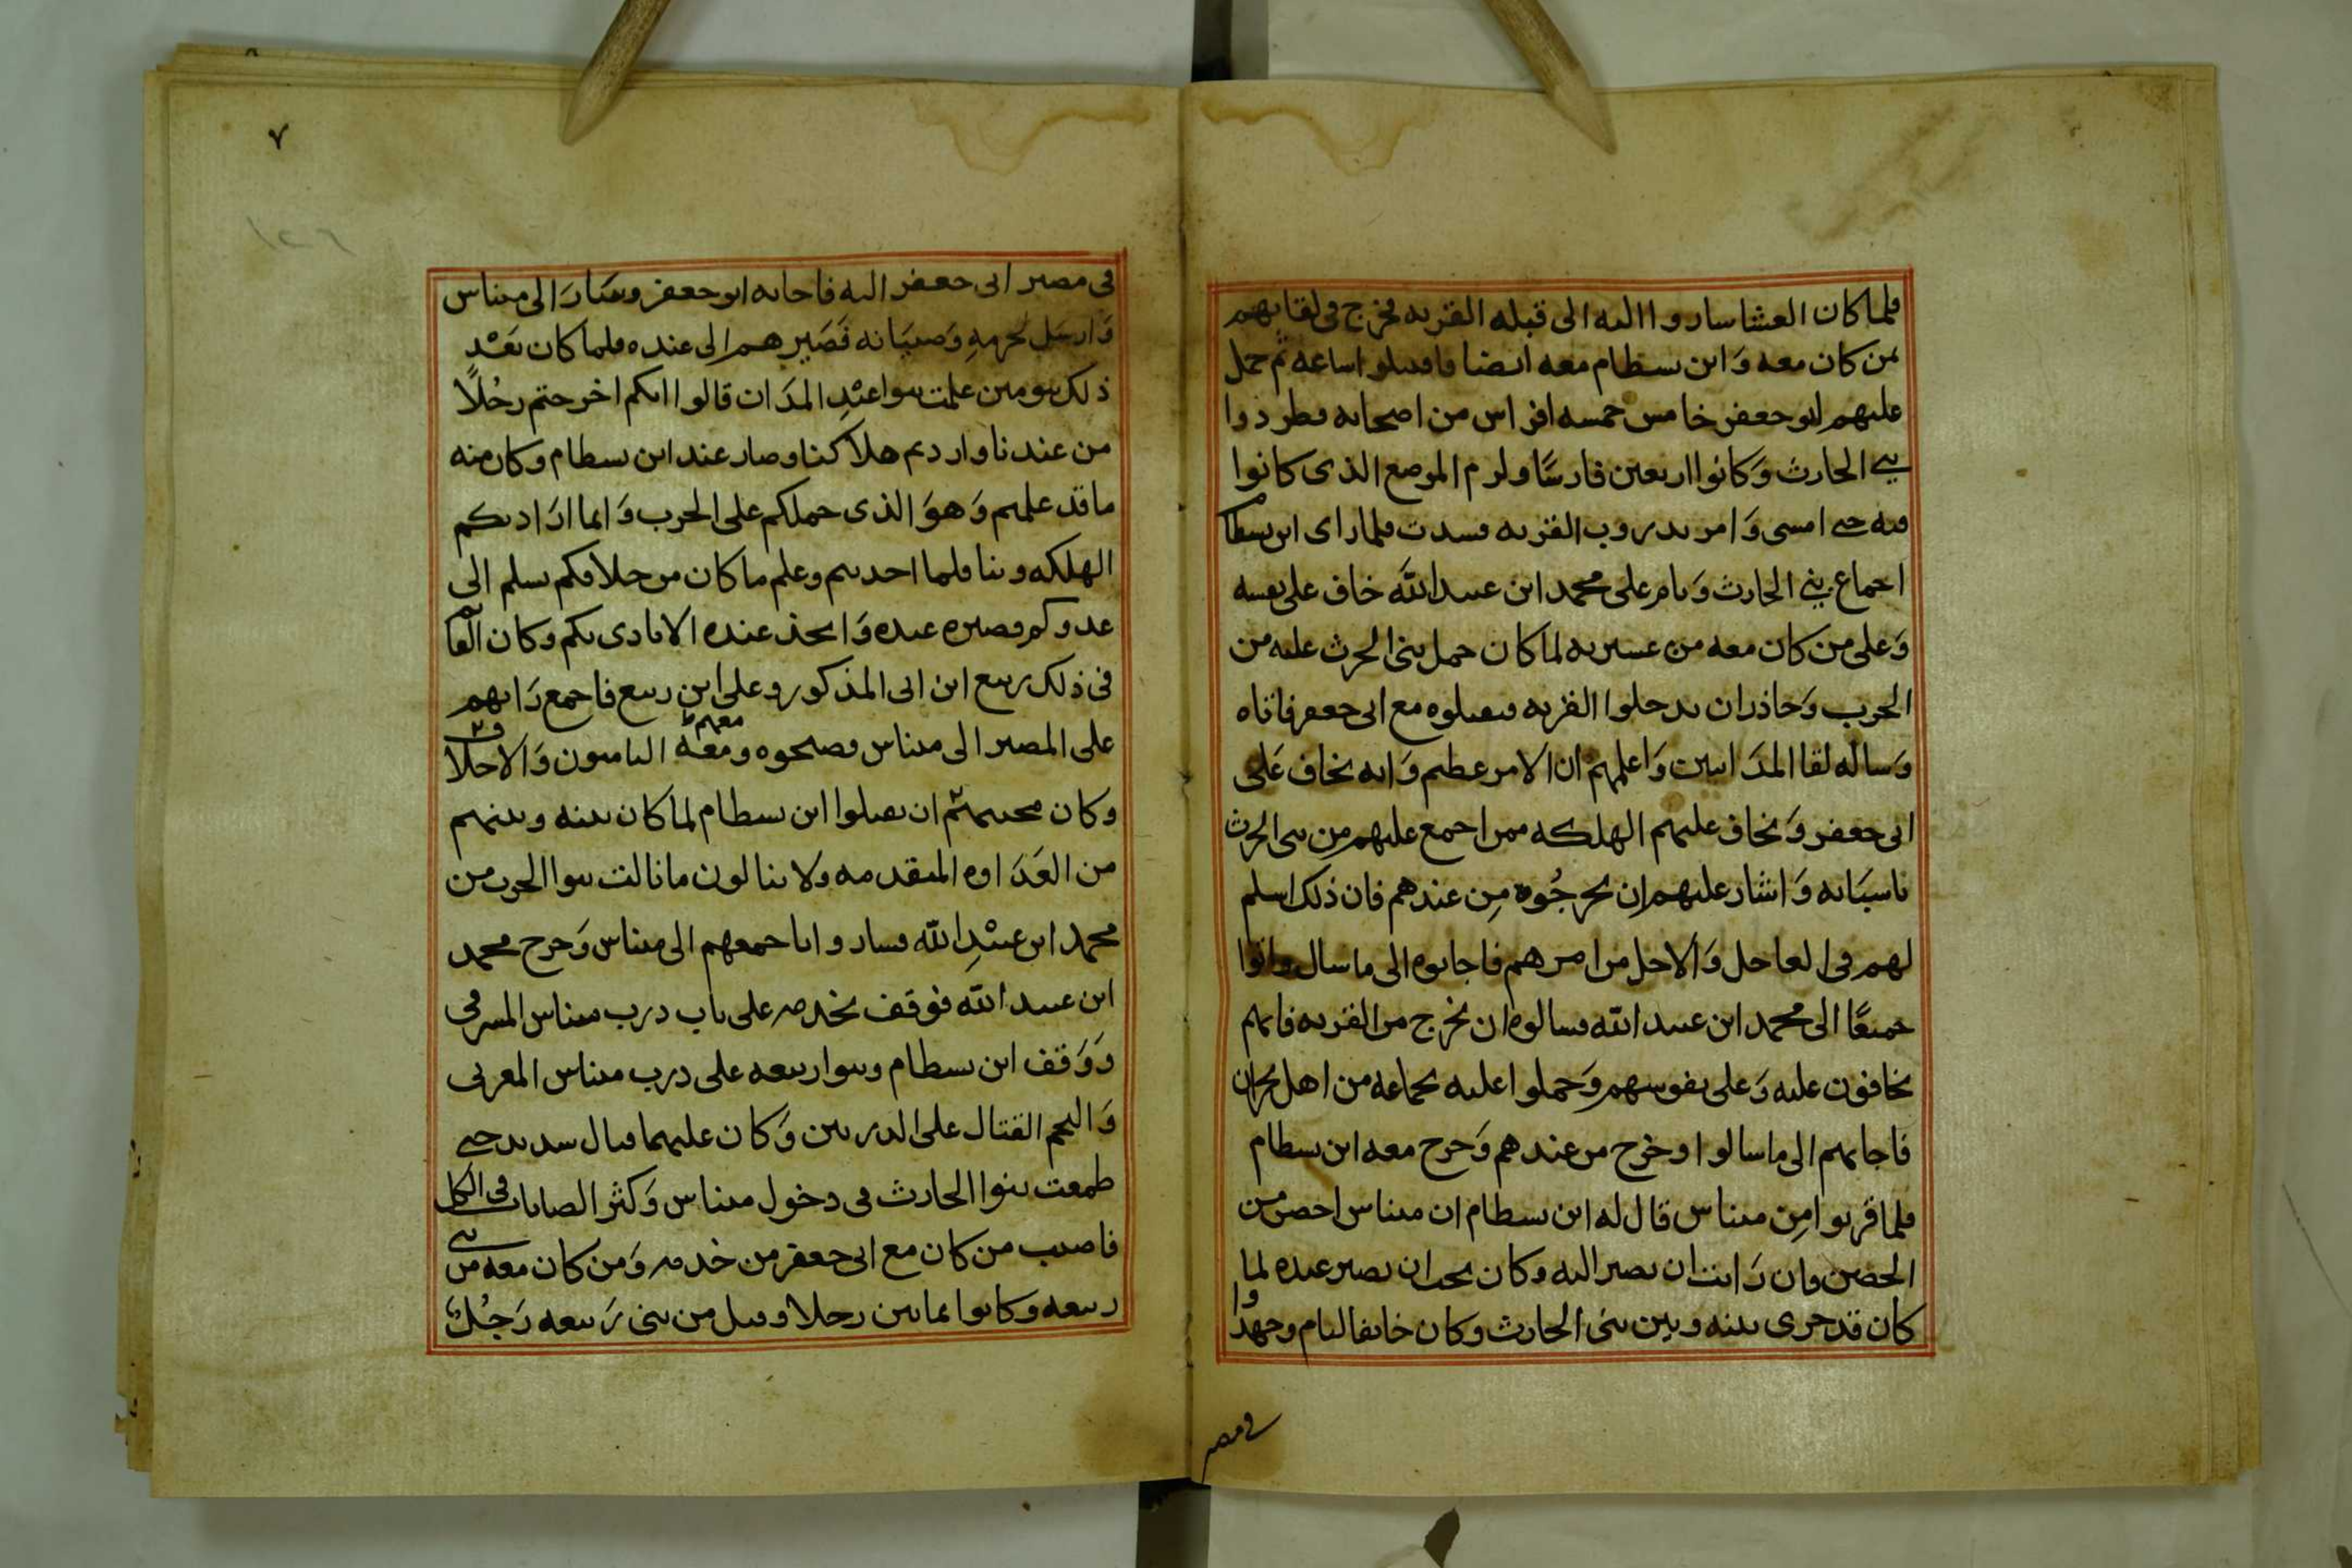 فلما كان العشا ساروا اليه الى قبله القريه فخرج فى لقايهم
بمن كان معه وَابن بسطام معه ايضا فاقتتلوا ساعه ثم حمل
عليهم ابو جعفر خامس خمسه افراس من اصحابه فطردوا
بني الحارث وَكانوا اربعين فارسًا ولزم الموضع الذى كانوا
فيه حتى امسى وَامر بدروب القريه فسدت فلما راى ابن بسطام
اجماع بني الحارث وَيام على محمد ابن عبيد الله خاف على نفسه
وَعلى من كان معه من عشيرته لما كان حمل بنى الحرث عليه من
الحرب وَحاذر ان يدخلوا القريه فيقتلوه مع ابى جعفر فاتاه
وَساله لقا المدَانيين وَاعلمهم ان الامر عظيم وَانه يخاف عَلى
ابى جعفر وَيخاف عليهم الهلكه ممن اجمع عليهم من بنى الحرث
باسبَابه وَاشار عليهم ان يخرجُوه مِن عندهم فان ذلك اسلم
لهم فى العاجل وَالاجل من امرهم فاجابوه الى ما سال واتوا
جميعًا الى محمد ابن عبيد الله فسالوه ان يخرج من القريه فانهم
يخافون عليه وَعلى نفوسهم وَحملوا عليه بجماعه من اهل نجران
فاجابهم الى ما سالوا وخرج من عندهم وَخرج معه ابن بسطام
فلما قربوا مِن ميناس قال له ابن بسطام ان ميناس احصن من
الحصن وان رَايت ان تصير اليه وكان يحب ان يصير عنده لما
كان قد جرى بينه وبين بنى الحارث وكان خايفا ليام وجهدوا
فى مصير
٧
١٢٦
فى مصير ابى جعفر اليه فاجابه ابو جعفر وسَارَ الى ميناس
وَارسَل لحرمهِ وَصبيَانه فَصَيرهم الى عنده فلما كان بَعْد
ذلك بيومين علمت بنوا عبْدِ المدَان قالوا انكم اخرجتم رجُلاً
من عندنا واردتم هلاكنا وصار عند ابن بسطام وكان منه
ما قد علمتم وَهوَ الذى حملكم على الحرب وَانما ارَاد بكم
الهلكه وبنا فلما اجدبتم وعلم ما كان من خلافكم تسلم الى
عدوكم وصيره عنده وَاتخذ عنده الايادى بكم وكان القايم
فى ذلك ربيع ابن ابى المذكور وعلى ابن ربيع فاجمع رَايهم
على المصير الى ميناس وصبحوه ومعه معهم الياميون وَالاحلاف
وكان محبتهم ان يقتلوا ابن بسطام لما كان بينه وبينهم
من العَدَاوه المتقدمه ولا ينالون ما نالت بنوا الحرب من
محمد ابن عبْدِ الله فساروا باجمعهم الى ميناس وَخرج محمد
ابن عبيد الله فوقف بخدمه على باب درب ميناس المشرقى
وَوَقف ابن بسطام وبنوا ربيعه على درب ميناس المغربى
وَالتحم القتال على الدربين وَكان عليهما قتال شديد حتى
طمعت بنوا الحارث فى دخول ميناس وَكثر الصابات فى الكل
فاصيب من كان مع ابى جعفر من خدمه وَمن كان معه من بنى
ربيعه وكانوا ثمانين رجلا وقتل من بنى رَبيعه رَجُل